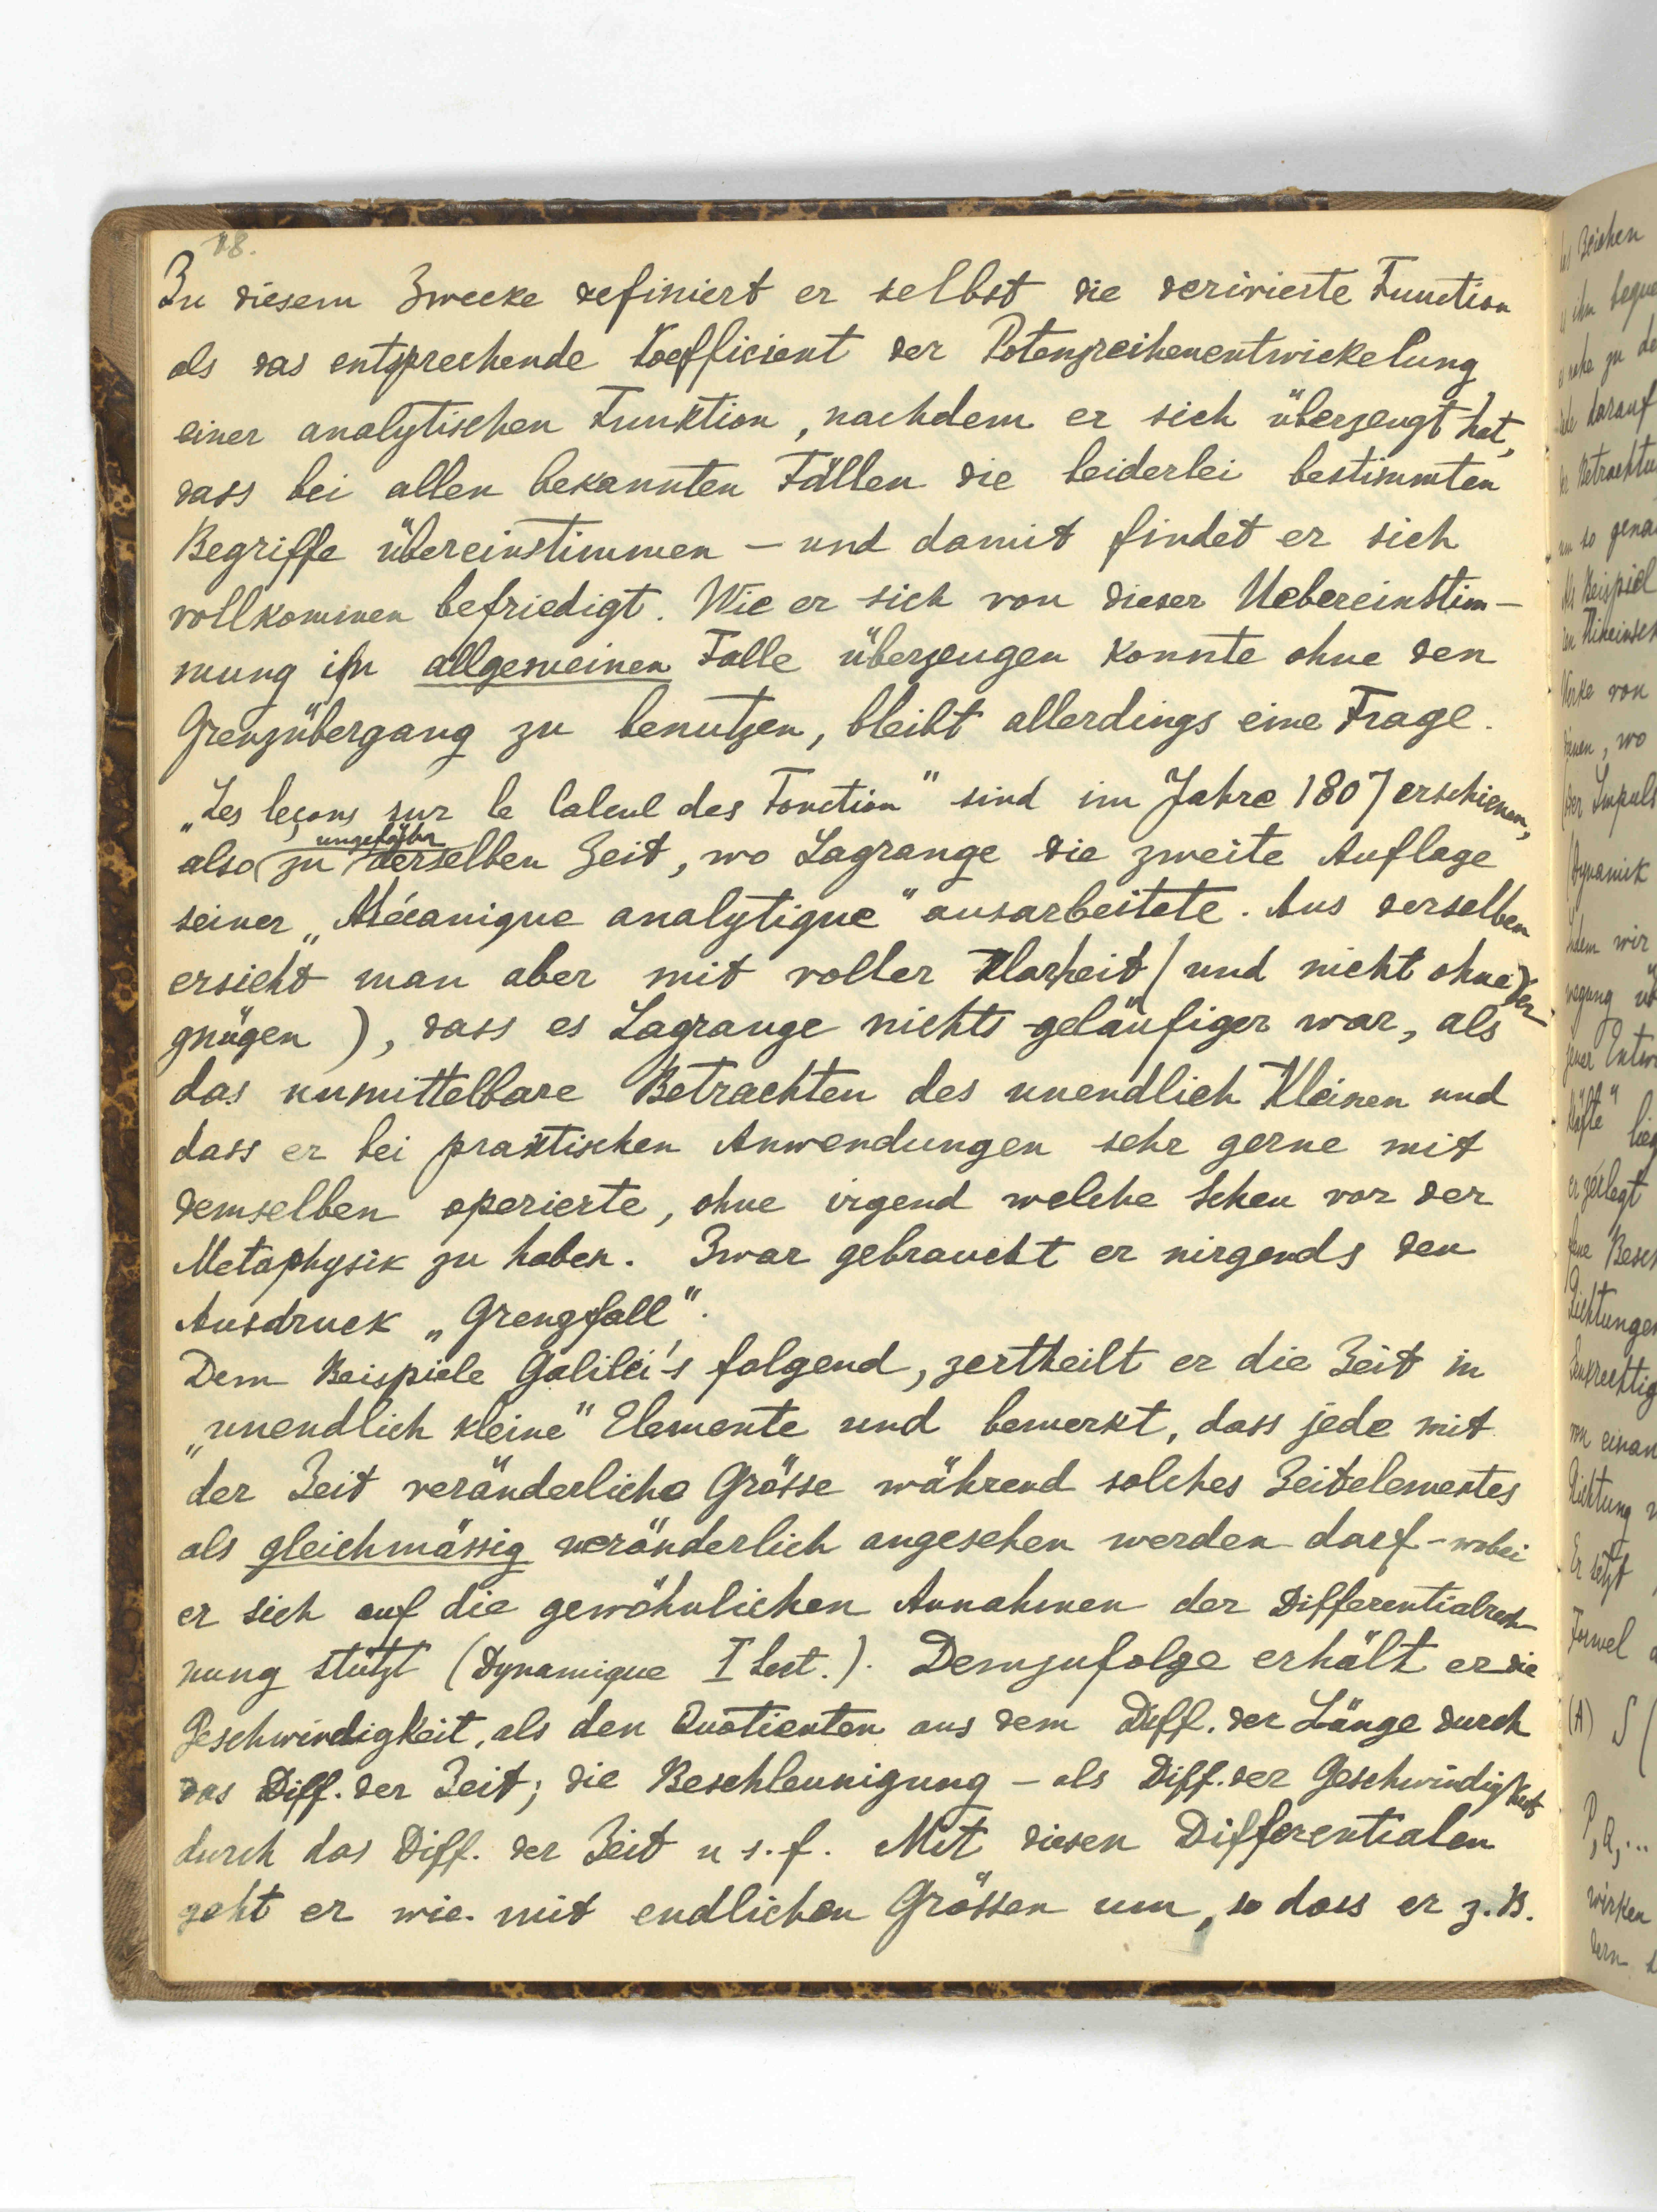 18.
Zu diesem Zwecke definiert er selbst die derivierte Function
als das entsprechende Koefficient der Potenzreihenentwickelung
einer analytischen Funktion, nachdem er sich überzeugt hat,
dass bei allen bekannten Fällen die beiderlei bestimmten
Begriffe übereinstimmen – und damit findet er sich
vollkommen befriedigt. Wie er sich von dieser Uebereinstim-
mung im allgemeinen Falle überzeugen konnte ohne den
Grenzübergang zu benutzen, bleibt allerdings eine Frage.
„Les leçons sur le Calcul des Fonction“ sind im Jahre 1807 erschienen,
ungefähr
also zu derselben Zeit, wo Lagrange die zweite Auflage
seiner „Mécanique analytique“ ausarbeitete. Aus derselben
ersieht man aber mit voller Klarheit (und nicht ohne Ver-
gnügen), dass es Lagrange nichts geläufiger war, als
das unmittelbare Betrachten des unendlich Kleinen und
dass er bei praktischen Anwendungen sehr gerne mit
demselben operierte, ohne irgend welche Scheu vor der
Metaphysik zu haben. Zwar gebraucht er nirgends den
Ausdruck „Grenzfall“.
Dem Beispiele Galilei's folgend, zertheilt er die Zeit in
„unendlich kleine“ Elemente und bemerkt, dass jede mit
der Zeit veränderliche Grösse während solches Zeitelementes
als gleichmässig veränderlich angesehen werden darf – wobei
er sich auf die gewöhnlichen Annahmen der Differentialrech-
nung stützt (Dynamique I Sect.). Demzufolge erhält er die
Geschwindigkeit, als den Quotienten aus dem Diff. der Länge durch
das Diff. der Zeit; die Beschleunigung – als Diff. der Geschwindigkeit
durch das Diff. der Zeit u s. f. Mit diesen Differentialen
geht er wie mit endlichen Grössen um, so dass er z. B.
Zeichen
darauf
so
Beispiel
Werke von
, wo
der Impuls
(Dynamik
Indem wir
er zerlegt
Richtungen
von einan
Richtung
Er setzt
Formel
(A) S (
P, Q, ...
wirken